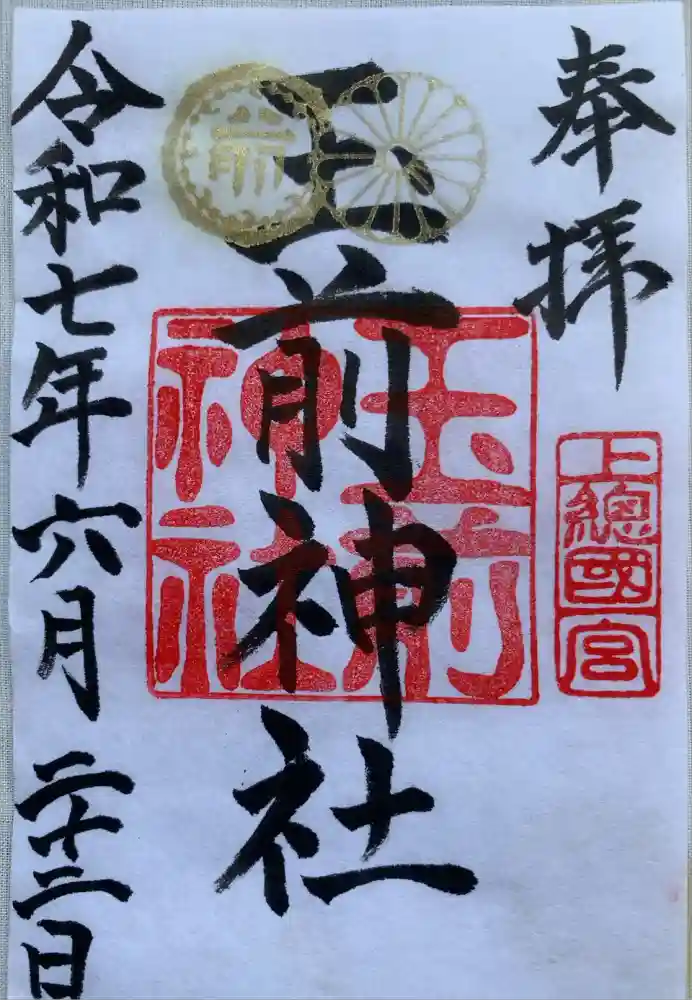 奉拝
上總國一宮
玉前神社
玉前
神社
令和七年六月二十二日